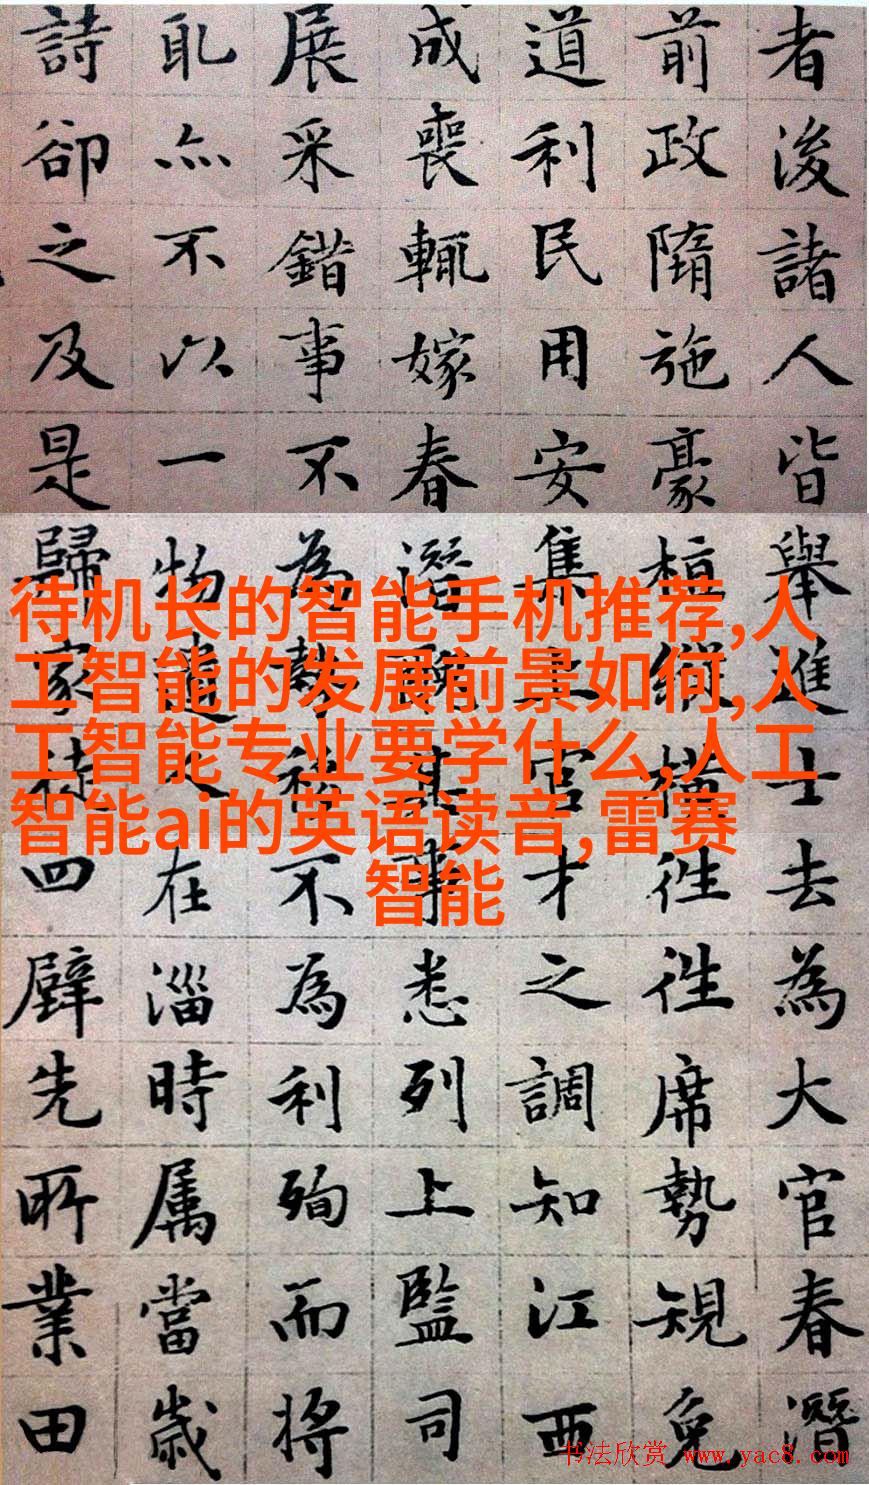 者浚諸人皆舉進士去為大官春潛
前政隋施豪植縱橫徃徃席勢規免
道利民用安集上官才之調知江西
成喪輒嫁春潛聯其事悉列上監司
展采錯事不為勢移不為利殉而將
耴亦不以一物遣人在淄時属當歲
詩卻之及是歸家徒四壁先所業田
待机长的智能手机推荐,人
工智能的发展前景如何,人
工智能专业要学什么,人工
智能ai的英语读音,雷赛
智能
书法欣赏 www.yac8.com